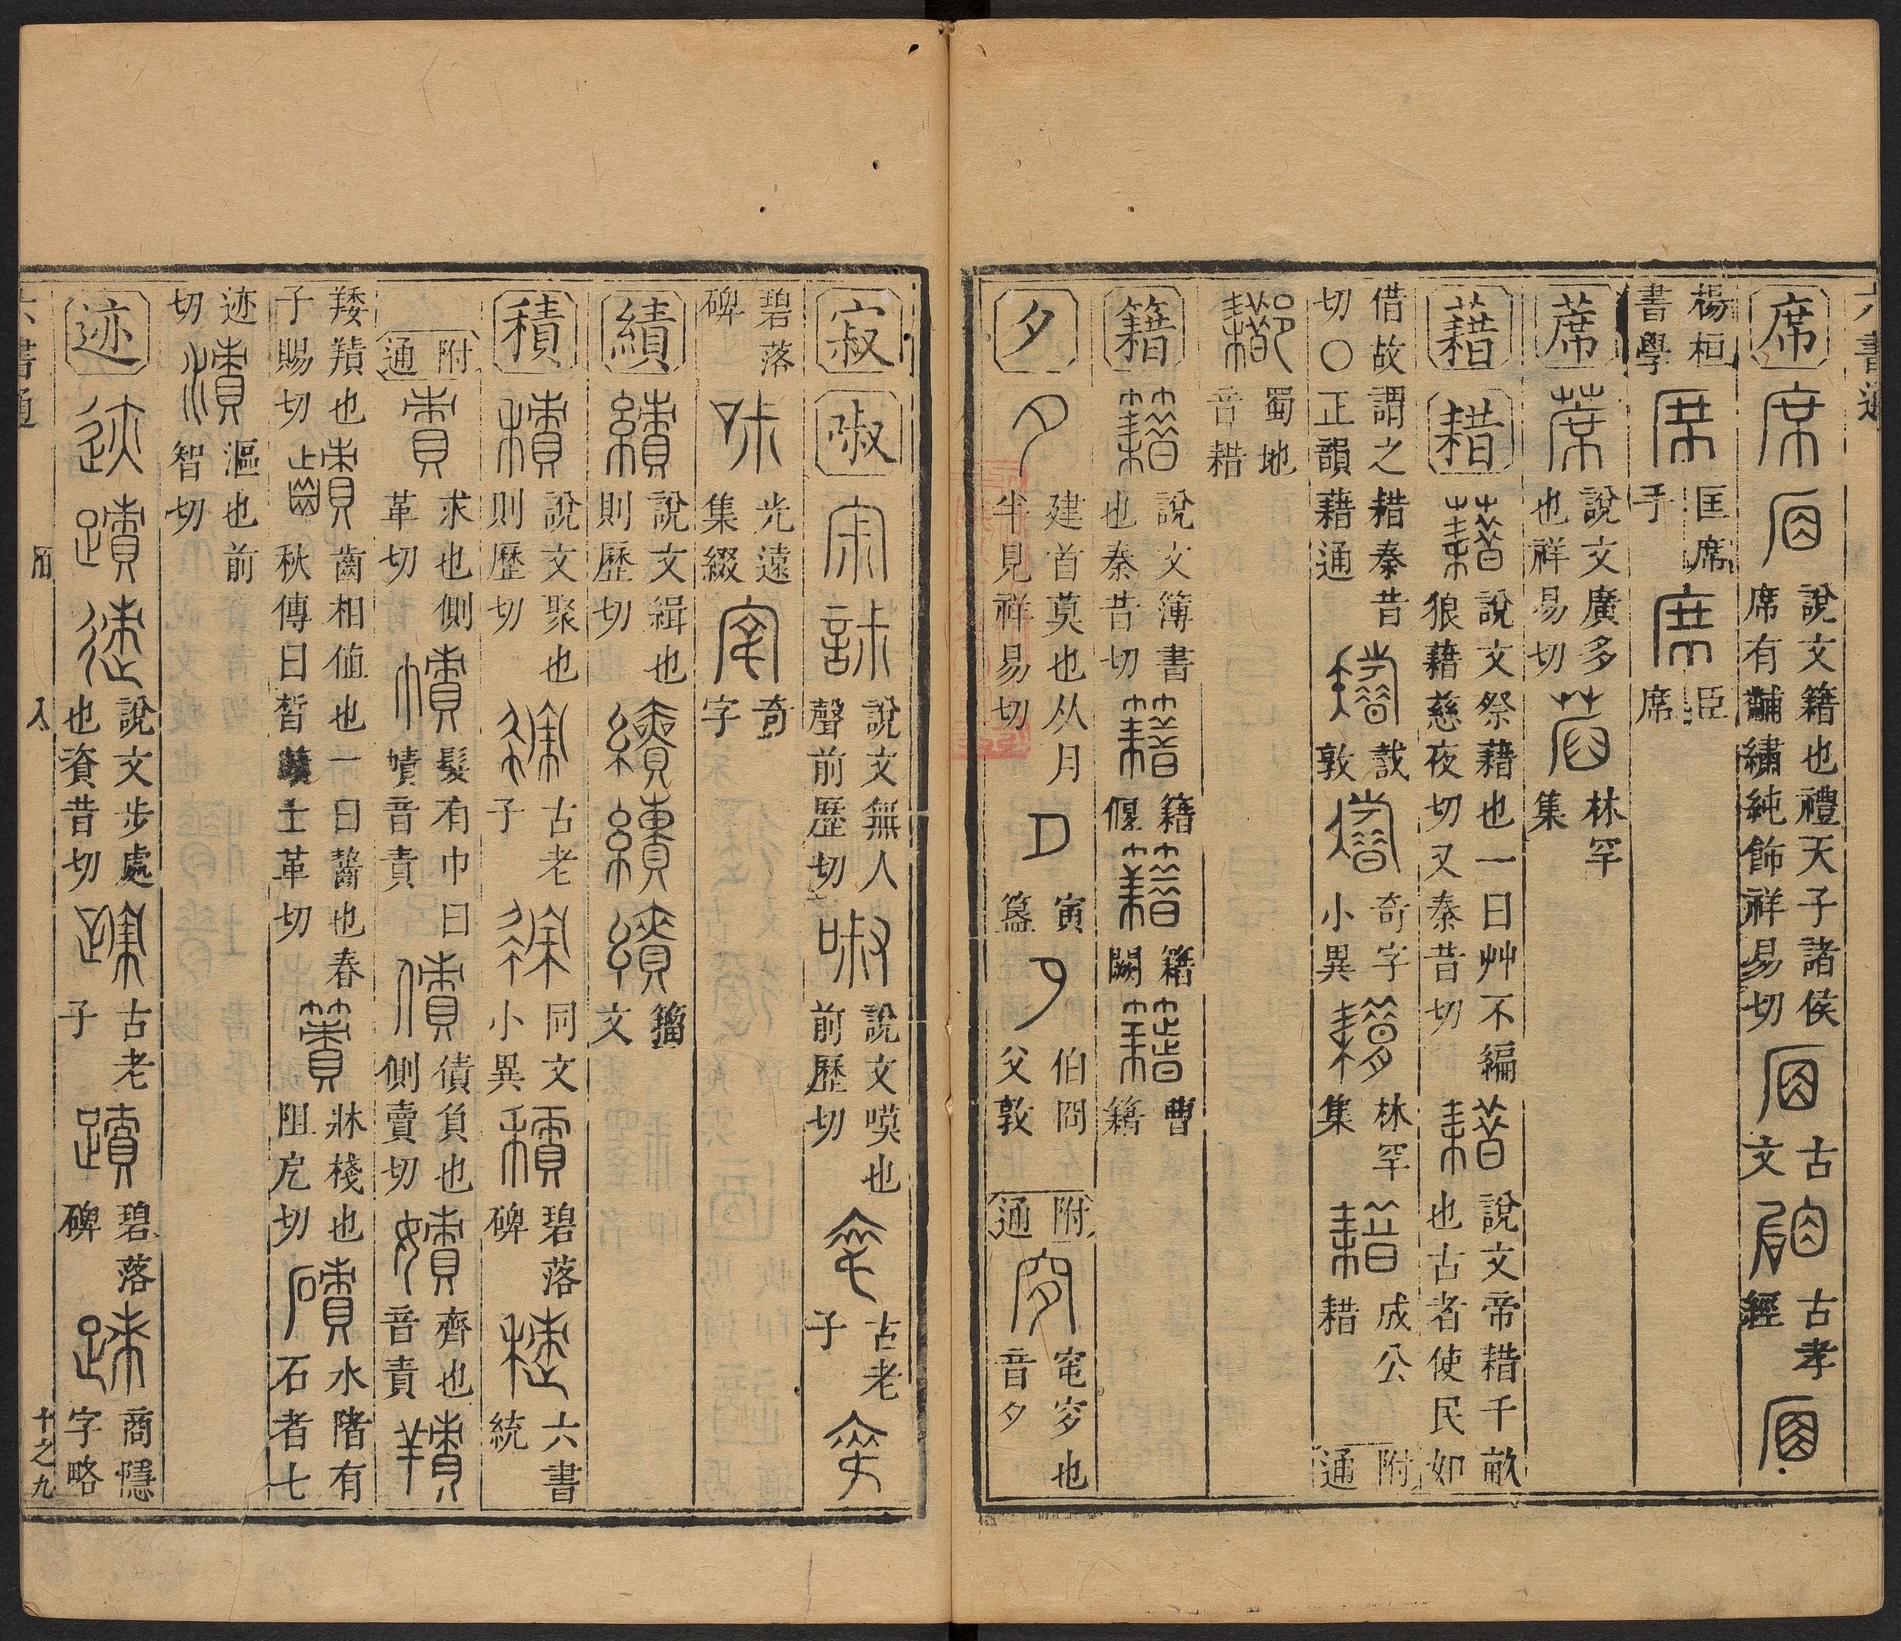 六書通
席 席 𠩋 說文籍也禮天子諸侯席有黼繡純飾祥易切 𠩋 古文 古孝經
楊桓書學 席 匡席手 席 臣席
蓆 蓆 說文廣多也祥易切 林罕集
藉 耤 藉 說文祭藉也一曰艸不編狼藉慈夜切又秦昔切 耤 說文帝耤千畝也古者使民如
借故謂之耤秦昔切〇正韻藉通 㦴敦 奇字小異 林罕集 成公耤 附通
蜀地音耤
籍 籍 說文簿書也秦昔切 籍 籍偃 籍 籍闕 籍 曹籍
夕 夕 建首莫也从月半見祥易切 寅簋 伯冏父敦 附通 穸 窀穸也音夕
寂 㖡 宋 詸 說文無人聲前歷切 㖡 說文嘆也前歷切 古老子
碧落碑 光遠集綴 奇字
績 績 說文緝也則歷切 績 績 績 籀文
積 積 說文聚也則歷切 古老子 同文小異 積 碧落碑 六書統
附通 責 求也側革切 幘 髮有巾曰幘音責 債 債負也側賣切 嫧 齊也音責 羵
羠羵也子賜切 齰 齒相值也一曰齰也春秋傳曰晳齰士革切 簀 牀棧也阻戹切 磧 水陼有石者七
迹切 漬 漚也前智切
迹 迹 蹟 速 說文步處也資昔切 古老子 蹟 碧落碑 商隱字略
六書通 入 十之九